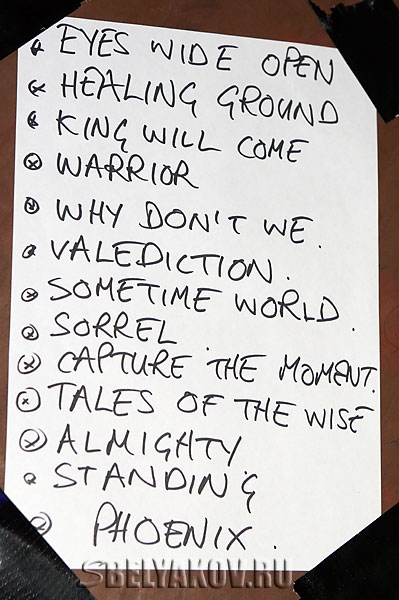 EYES WIDE OPEN
HEALING GROUND
KING WILL COME
WARRIOR
WHY DON'T WE.
VALEDICTION.
SOMETIME WORLD.
SORREL.
CAPTURE THE MOMENT.
TALES OF THE WISE
ALMIGHTY
STANDING
PHOENIX.
SBELYAKOV.RU